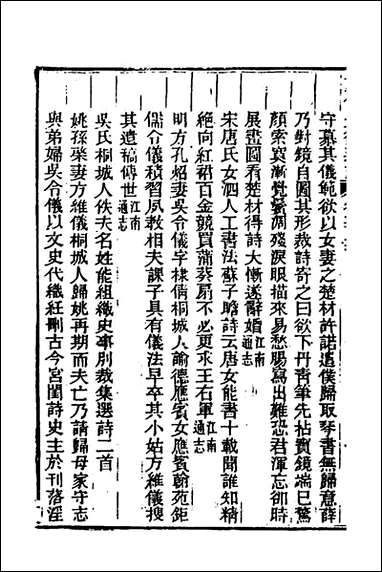 守慕其儀範欲以女妻之楚材許諾遣僕歸取琴書無歸意薛
乃對鏡自圖其形裁詩寄之曰欲下丹青筆先拈寶鏡端已驚
顏索寞漸覺鬢凋殘淚眼描來易愁腸寫出難恐君渾忘卻時
展畫圖看楚材得詩大慚遂辭婚江南通志
宋唐氏女泗人工書法蘇子瞻詩云唐女能書十載聞誰知精
絕向紅裙百金競買蒲葵扇不必更求王右軍江南通志
明方孔炤妻吳令儀字棣倩桐城人諭德應賓女應賓翰苑鉅
儒令儀積習夙教相夫課子具有儀法早卒其小姑方維儀搜
其遺稿傳世江南通志
吳氏桐城人佚夫名姓能組織史事別裁集選詩二首
姚孫棨妻方維儀桐城人歸姚再期而夫亡乃請歸母家守志
與弟婦吳令儀以文史代織紝刪古今宮閨詩史主於刊落淫